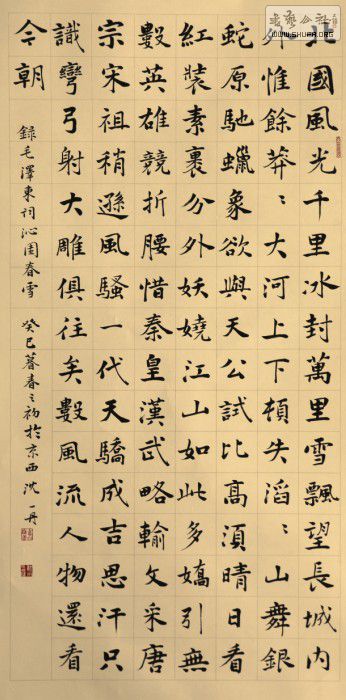 北國風光千里冰封萬里雪飄望長城内
外惟餘莽〻大河上下頓失滔〻山舞銀
蛇原馳蠟象欲與天公試比高須晴日看
紅裝素裹分外妖嬈江山如此多嬌引無
數英雄競折腰惜秦皇漢武略輸文采唐
宗宋祖稍遜風騷一代天驕成吉思汗只
識彎弓射大雕俱往矣數風流人物還看
今朝
錄毛澤東詞沁園春雪 癸巳暮春之初於京西沈一丹
WWW.SHUFA.ORG